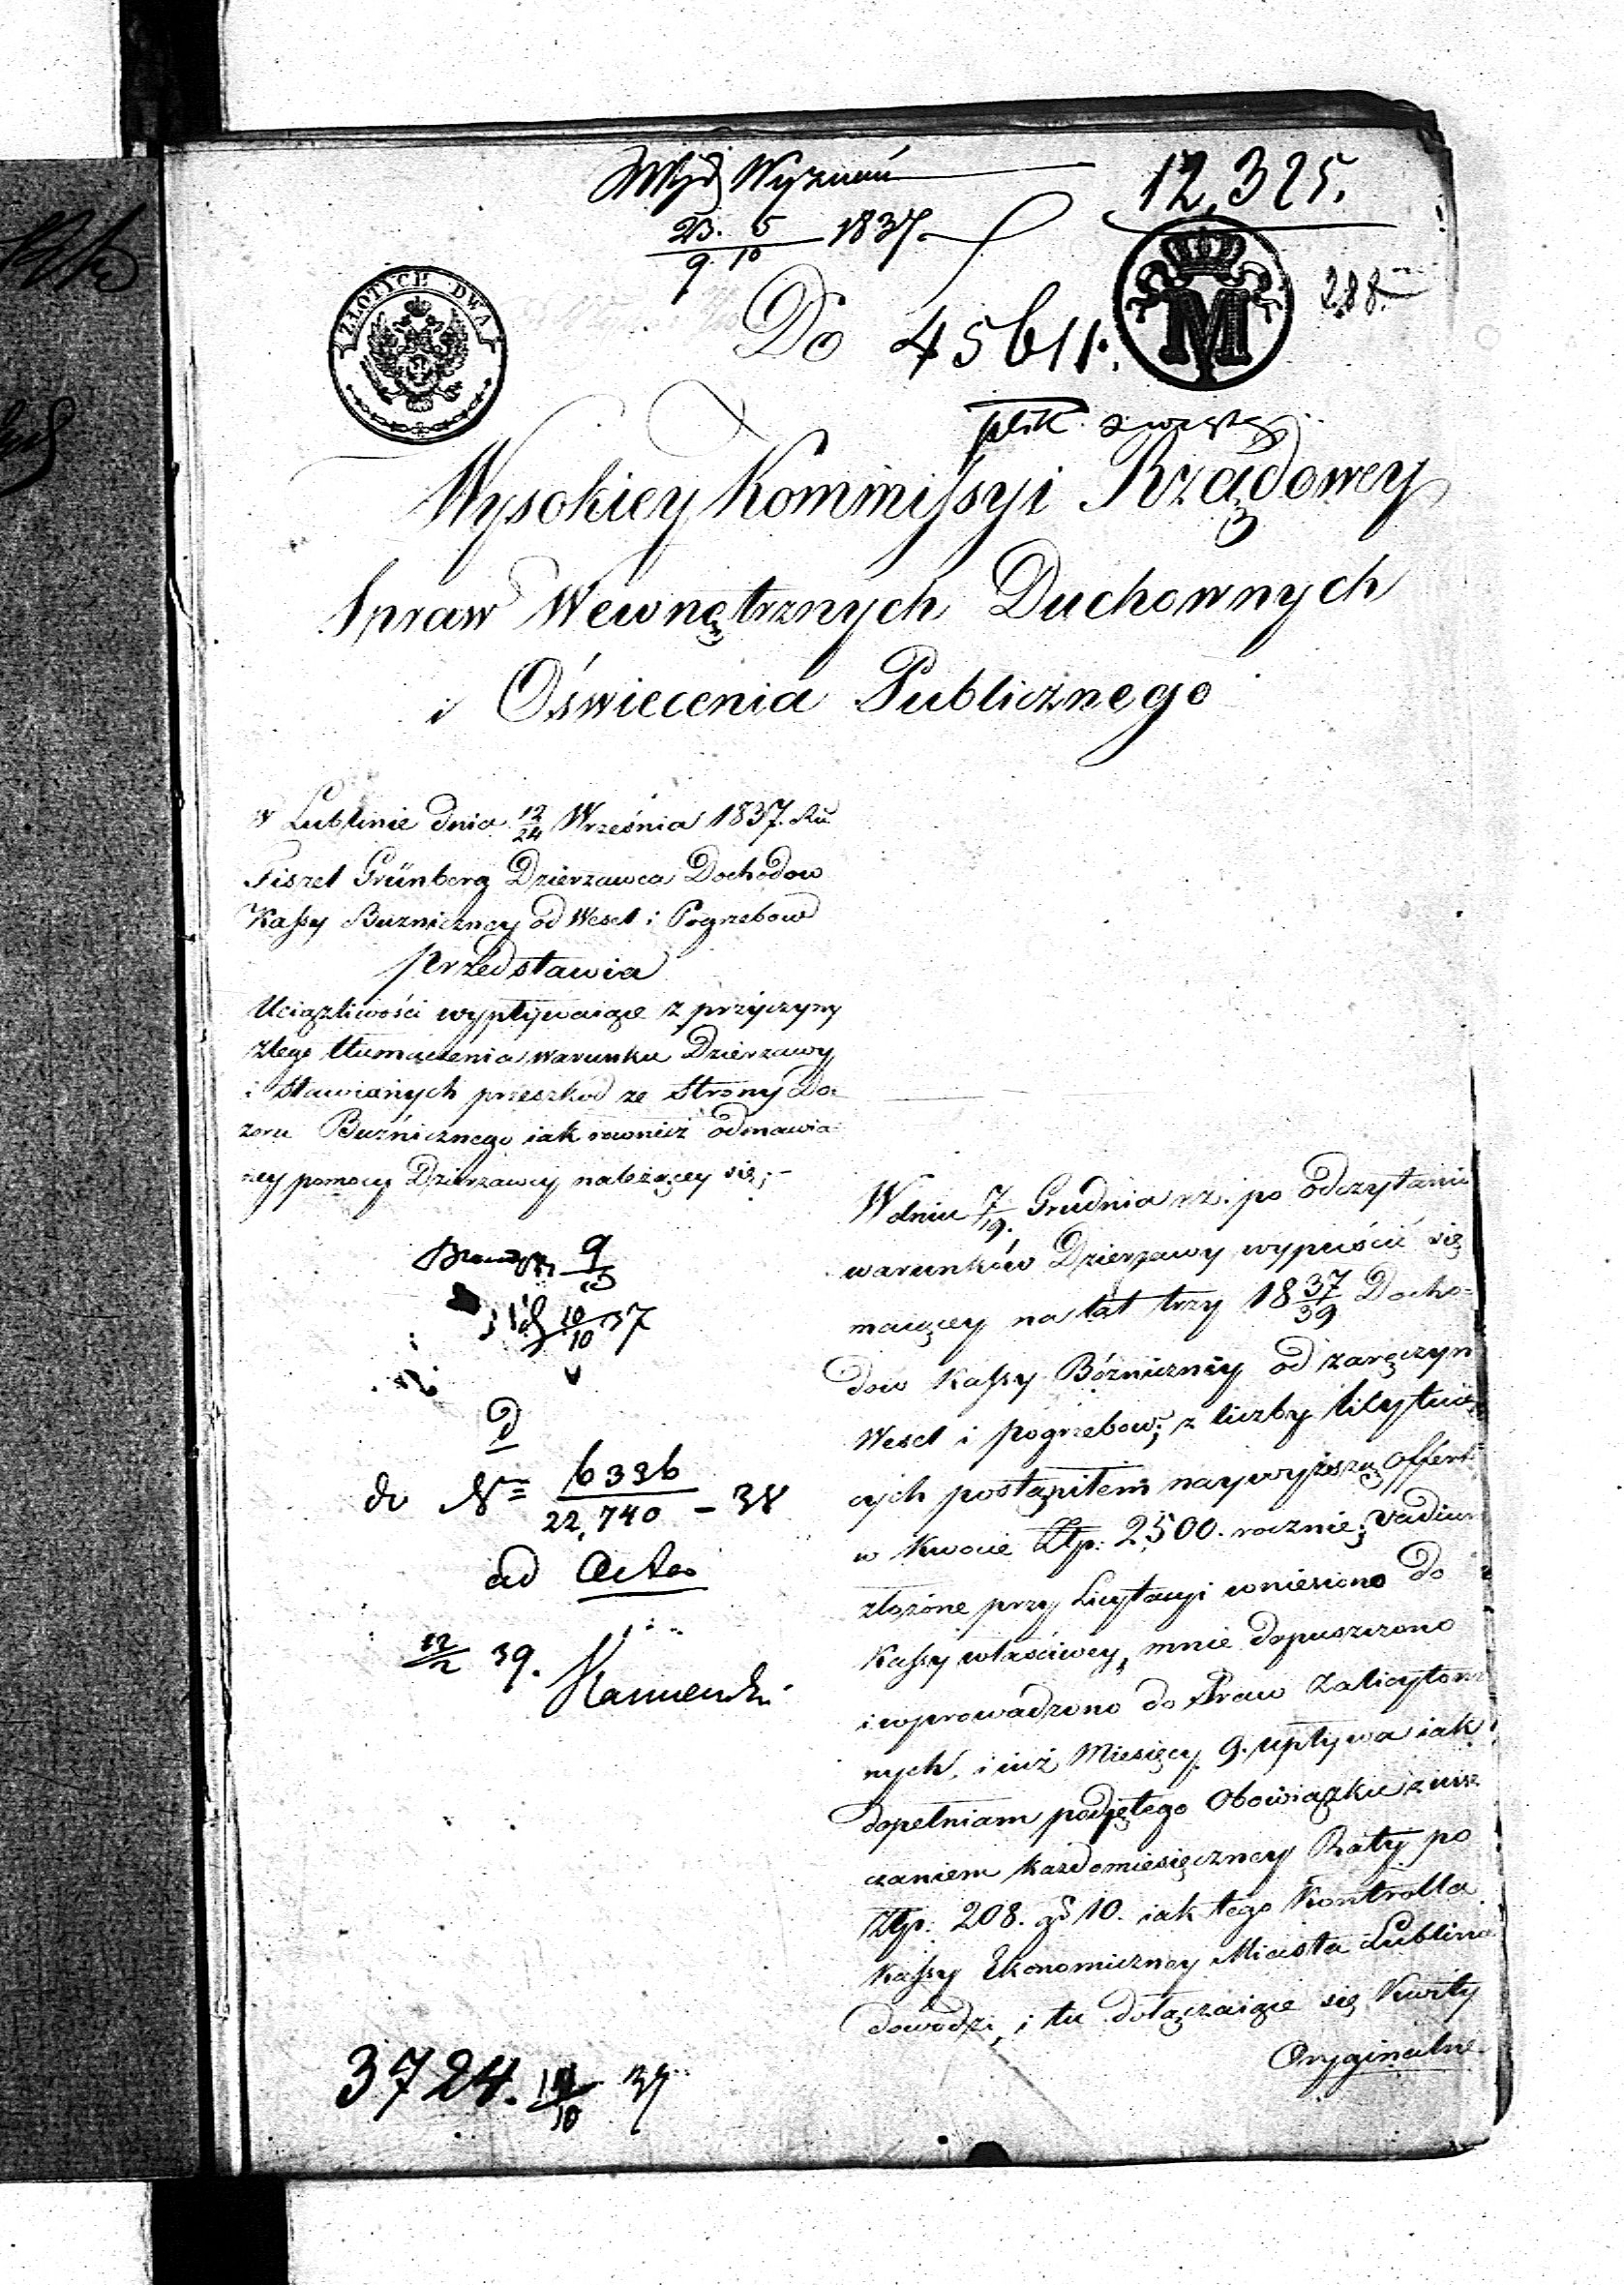 Wyd. Wyznań
12,325.
23. 5
9. 10 1837.
ZŁOTYCH DWA
M
288.
Do 45611.
plik
Wysokiey Kommissyi Rządowey
Spraw Wewnętrznych Duchownych
i Oświecenia Publicznego
w Lublinie dnia 12/24 Września 1837. Ru
Fiszel Grünberg Dzierzawca Dochodow
Kassy Buzniczney od Wesel i Pogrzebow
przedstawia
Uciążliwości wypływaiące z przyczyny
złego tłumaczenia warunku Dzierzawy
i stawianych przeszkod ze Strony Do=
zoru Buźniczego iak rownież odmawia
ney pomocy Dzierzawcy należącey się;-
9/10
10/10 37
D
do No 6396/22,740 - 38
ad Acta
12/2 39.
Kamieński
3724. 37
W dniu 7/19. Grudnia r.z. po odczytaniu
warunków Dzierzawy wypuścić się
maiącey na lat trzy 1837/39 Docho=
dow Kassy Bóżniczney od zaręczyn
Wesel i pogrzebow; z liczby licytuią
cych postąpiłem naywyższą offert
w kwocie Złp: 2500. rocznie; Vadium
złożone przy Licytacyi wniesiono do
Kassy właściwey, mnie dopuszczono
i wprowadzono do Praw Zalicytowa
nych, i iuż Miesięcy 9. upływa iak
dopełniam podjętego Obowiązku z uisz
czaniem każdomiesięczney Raty po
Złp: 208. gr 10. iak tego Kontrolla
Kassy Ekonomiczney Miasta Lublina
dowodzi, i tu dołączaiące się Kwity
Oryginalne